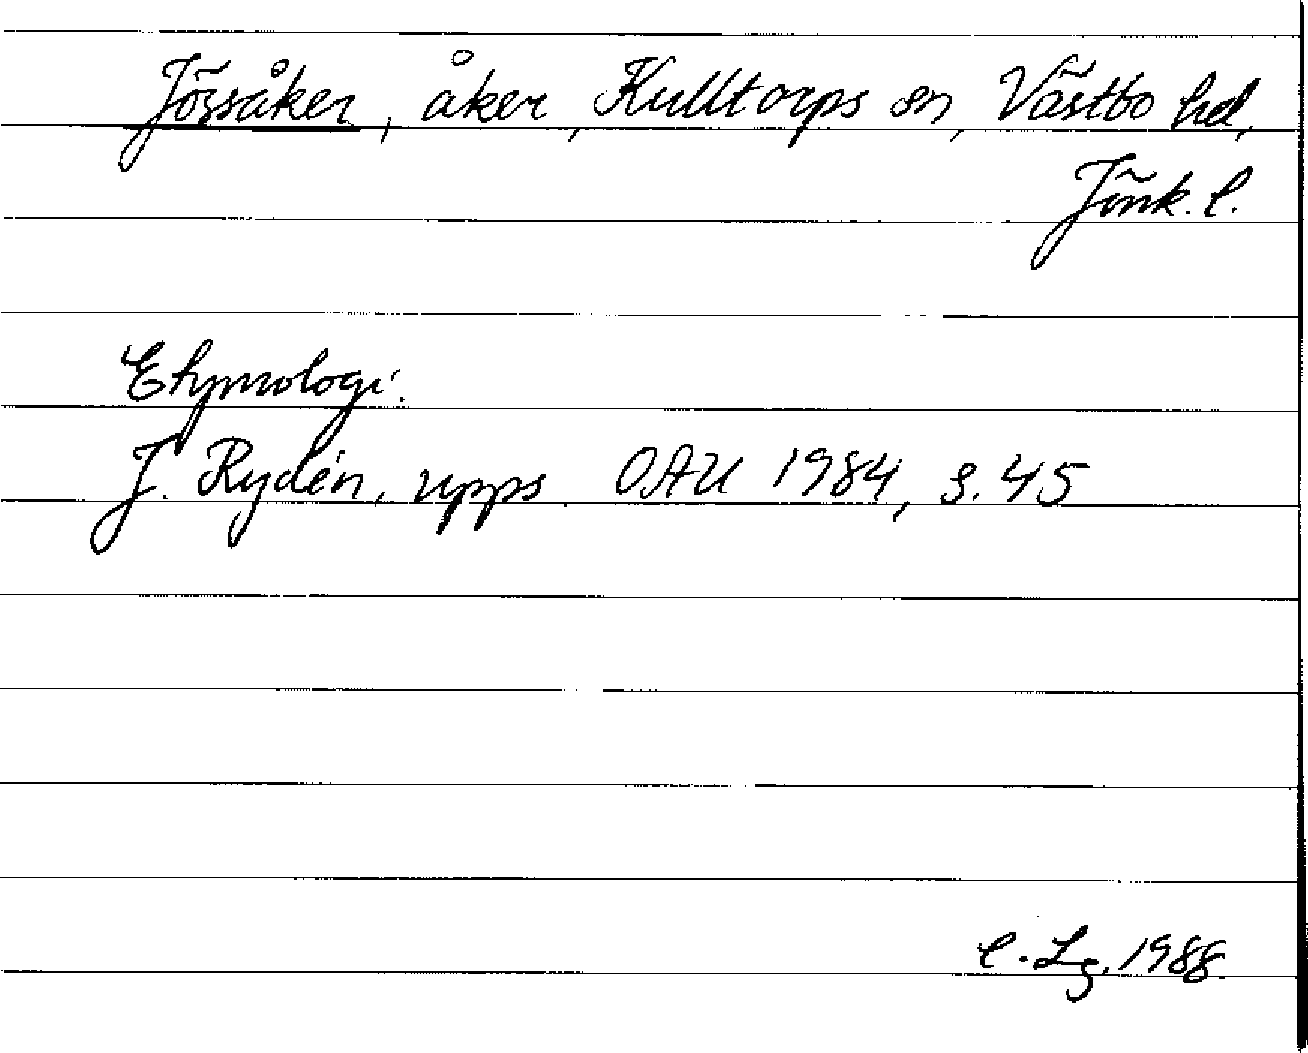 Jössåker, åker, Kulltorps sn, Västbo hd,
Jönk. l.
Etymologi.
J. Rydén, upps OAU 1984, s. 45
C. Lg. 1988